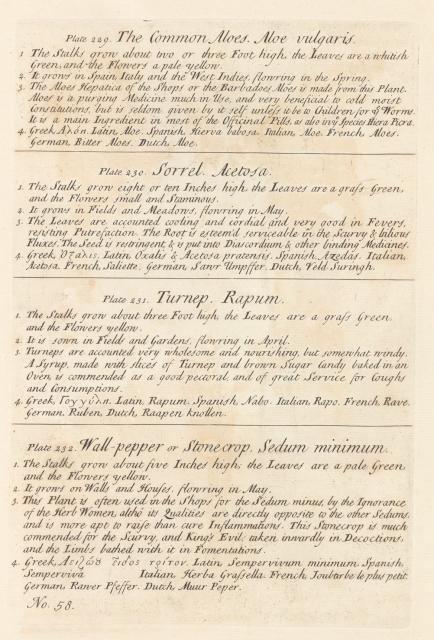 Plate 229. The Common Aloes. Aloe vulgaris.
1 The Stalks grow about two or three Foot high, the Leaves are a whitish
Green, and the Flowers a pale yellow.
2. It grows in Spain, Italy and the West Indies, flowring in the Spring.
3. The Aloes Hepatica of the Shops or the Barbadoes Aloes is made from this Plant.
Aloes is a purging Medicine much in Use, and very beneficial to cold moist
Constitutions, but is seldom given by it self unless it be to Children for yͤ Worms.
It is a main Ingredient in most of the Officinal Pills, as also in yͤ Species Hiera Picra.
4. Greek, Latin, Aloe. Spanish, Hierva babosa. Italian, Aloe. French, Aloes.
German, Bitter Aloes. Dutch, Aloe.
Plate 230. Sorrel. Acetosa.
1. The Stalks grow eight or ten Inches high, the Leaves are a grass Green,
and the Flowers small and Staminous.
2. It grows in Fields and Meadows, flowring in May.
3. The Leaves are accounted cooling and cordial and very good in Fevers,
resisting Putrefaction. The Root is esteem'd serviceable in the Scurvy & bilious
Fluxes. The Seed is restringent, & is put into Diascordium & other binding Medicines.
4. Greek, Ὀξαλις, Latin, Oxalis & Acetosa pratensis, Spanish, Azedas. Italian,
Acetosa. French, Saliette. German, Sawr Ampffer. Dutch, Veld Suringh.
Plate 231. Turnep. Rapum.
1. The Stalks grow about three Foot high, the Leaves are a grass Green
and the Flowers yellow.
2. It is sown in Fields and Gardens, flowring in April.
3. Turneps are accounted very wholesome and nourishing, but somewhat windy.
A Syrup, made with slices of Turnep and brown Sugar Candy baked in an
Oven is commended as a good pectoral and of great Service for Coughs
and Consumptions.
4. Greek, Γογγύλη. Latin, Rapum. Spanish, Nabo. Italian Rapo. French, Rave.
German, Ruben. Dutch, Raapen knollen.
Plate 232. Wall-pepper or Stonecrop. Sedum minimum.
1. The Stalks grow about five Inches high, the Leaves are a pale Green
and the Flowers yellow.
2. It grows on Walls and Houses, flowring in May.
3. This Plant is often used in the Shops for the Sedum minus, by the Ignorance
of the Herb Women, altho its Qualities are directly opposite to the other Sedums,
and is more apt to raise than cure Inflammations. This Stonecrop is much
commended for the Scurvy, and King's Evil, taken inwardly in Decoctions,
and the Limbs bathed with it in Fomentations.
4. Greek, Ἀειζωον εἶδος τρίτον. Latin, Sempervivum minimum. Spanish,
Semperviva Italian, Herba Grassella. French, Joubarbe le plus petit.
German, Mawer Pfeffer. Dutch Muur Peper.
No. 58.